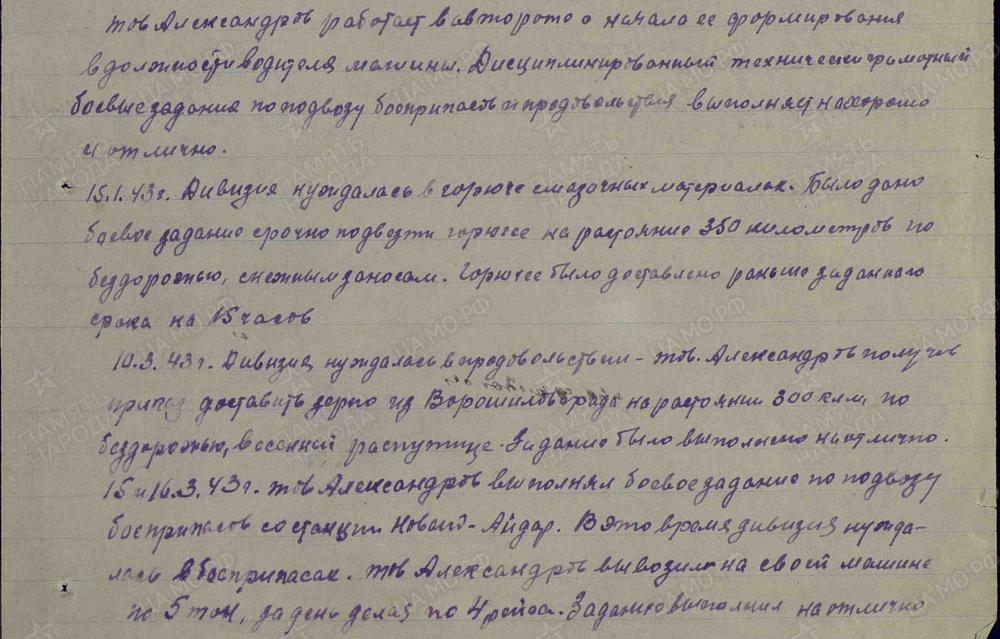 тов Александров работает в авто роте с начала ее формирования
в должности водителя машины. Дисциплинированный технически грамотный
боевые задания по подвозу боеприпасов и продовольствия выполняет на хорошо
и отлично.
15.1.43г. Дивизия нуждалась в горюче смазочных материалах. Было дано
боевое задание срочно подвезти горючее на растояние 350 километров по
бездорожью, снежным заносам. Горючее было доставлено раньше заданного
срока на 15 часов
10.3.43г. Дивизия нуждалась в продовольствии - тов. Александров получив
приказ доставить зерно из Ворошиловграда на растоянии 300 клм по
бездорожью, в весенней распутице. Задание было выполнено на отлично.
15 и 16.3.43г. тов Александров выполнял боевое задание по подвозу
боеприпасов со станции Новый-Айдар. В это время дивизия нужда-
лась в боеприпасах. тов Александров вывозил на своей машине
по 5 тон, за день делая по 4 рейса. Задание выполнил на отлично
ПАМЯТЬ НАРОДА
ЦАМО.РФ